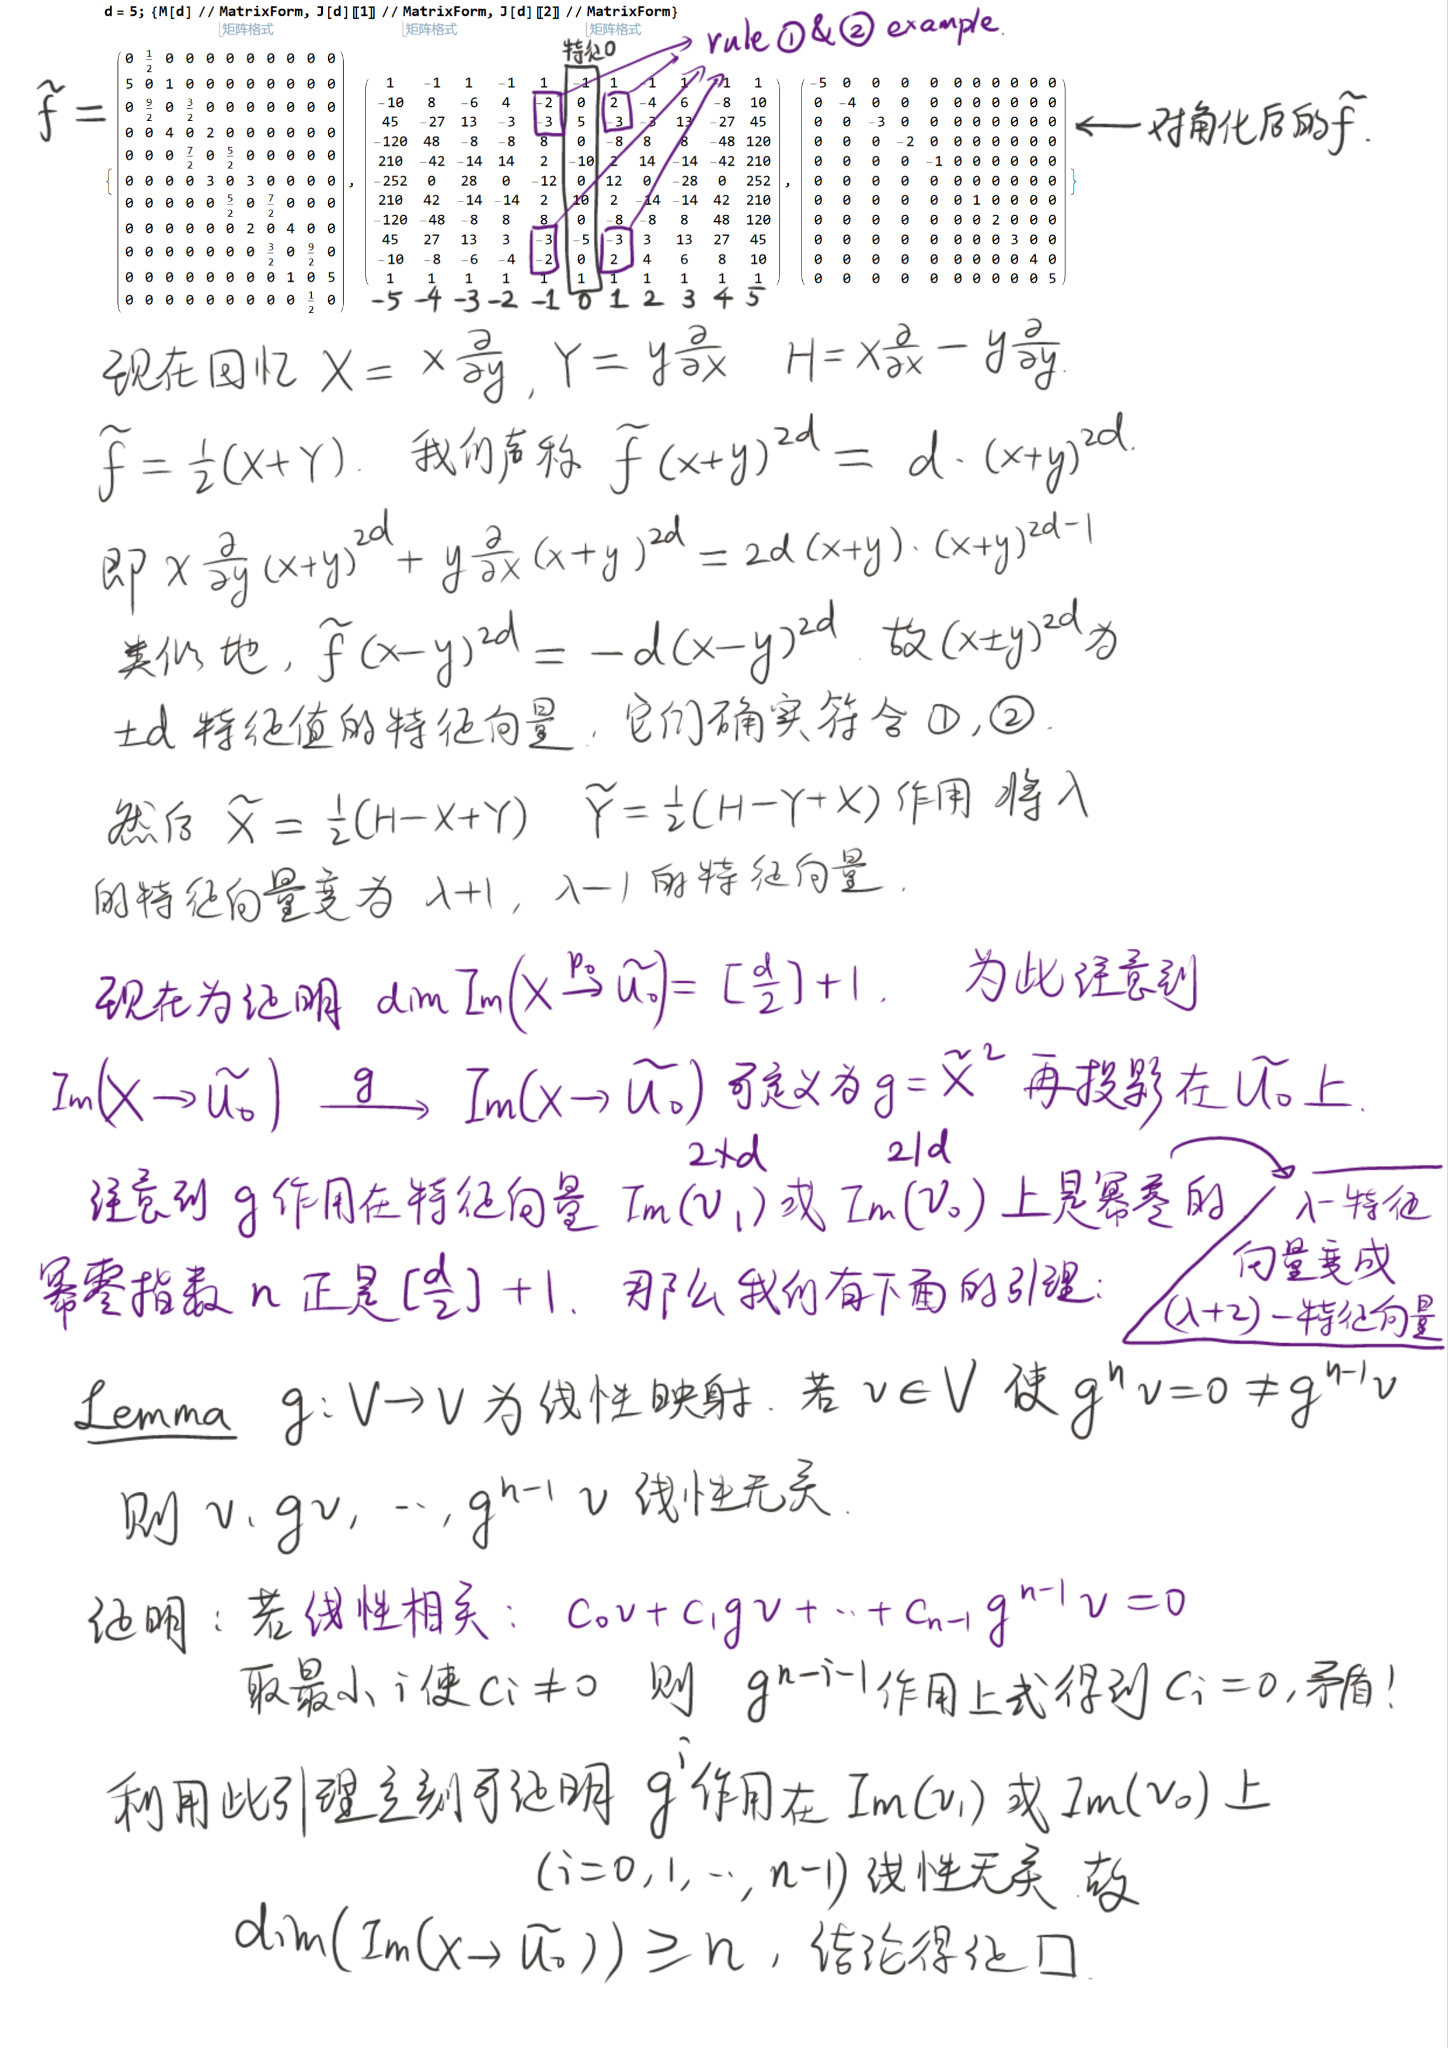 d = 5; {M[d] // MatrixForm, J[d][[1]] // MatrixForm, J[d][[2]] // MatrixForm}
矩阵格式 矩阵格式 矩阵格式
特征0 rule ①&② example.
f̃ =
{
0 1/2 0 0 0 0 0 0 0 0 0
5 0 1 0 0 0 0 0 0 0 0
0 9/2 0 3/2 0 0 0 0 0 0 0
0 0 4 0 2 0 0 0 0 0 0
0 0 0 7/2 0 5/2 0 0 0 0 0
0 0 0 0 3 0 3 0 0 0 0
0 0 0 0 0 5/2 0 7/2 0 0 0
0 0 0 0 0 0 2 0 4 0 0
0 0 0 0 0 0 0 3/2 0 9/2 0
0 0 0 0 0 0 0 0 1 0 5
0 0 0 0 0 0 0 0 0 1/2 0
,
1 -1 1 -1 1 -1 1 -1 1 -1 1
-10 8 -6 4 -2 0 2 -4 6 -8 10
45 -27 13 -3 -3 5 -3 -3 13 -27 45
-120 48 -8 -8 8 0 -8 8 8 -48 120
210 -42 -14 14 2 -10 2 14 -14 -42 210
-252 0 28 0 -12 0 12 0 -28 0 252
210 42 -14 -14 2 10 2 -14 -14 42 210
-120 -48 -8 8 8 0 -8 -8 8 48 120
45 27 13 3 -3 -5 -3 3 13 27 45
-10 -8 -6 -4 -2 0 2 4 6 8 10
1 1 1 1 1 1 1 1 1 1 1
,
-5 0 0 0 0 0 0 0 0 0 0
0 -4 0 0 0 0 0 0 0 0 0
0 0 -3 0 0 0 0 0 0 0 0
0 0 0 -2 0 0 0 0 0 0 0
0 0 0 0 -1 0 0 0 0 0 0
0 0 0 0 0 0 0 0 0 0 0
0 0 0 0 0 0 1 0 0 0 0
0 0 0 0 0 0 0 2 0 0 0
0 0 0 0 0 0 0 0 3 0 0
0 0 0 0 0 0 0 0 0 4 0
0 0 0 0 0 0 0 0 0 0 5
}
← 对角化后的f̃.
-5 -4 -3 -2 -1 0 1 2 3 4 5
现在回忆 X = x ∂/∂y, Y = y ∂/∂x H = x ∂/∂x − y ∂/∂y.
f̃ = ½(X+Y). 我们声称 f̃(x+y)^{2d} = d·(x+y)^{2d}.
即 x ∂/∂y (x+y)^{2d} + y ∂/∂x (x+y)^{2d} = 2d(x+y)·(x+y)^{2d-1}
类似地, f̃(x−y)^{2d} = −d(x−y)^{2d}. 故(x±y)^{2d}为
±d 特征值的特征向量, 它们确实符合①,②.
然后 X̃ = ½(H−X+Y) Ỹ = ½(H−Y+X) 作用 将λ
的特征向量变为 λ+1, λ−1 的特征向量.
现在为证明 dim Im(X →^{p₀} ũ₀) = [d/2]+1. 为此注意到
Im(X→ũ₀) —g→ Im(X→ũ₀) 可定义为 g = X̃² 再投影在ũ₀上.
2∤d 2|d
注意到 g 作用在特征向量 Im(v₁) 或 Im(v₀) 上是幂零的
λ-特征
向量变成
(λ+2)-特征向量
幂零指数 n 正是[d/2]+1. 那么我们有下面的引理:
Lemma g: V→V 为线性映射. 若 v∈V 使 gⁿv=0≠g^{n-1}v
则 v, gv, ⋯, g^{n-1}v 线性无关.
证明: 若线性相关: c₀v+c₁gv+⋯+c_{n-1}g^{n-1}v=0
取最小 i 使 cᵢ≠0 则 g^{n-i-1}作用上式得到 cᵢ=0, 矛盾!
利用此引理立刻可证明 gⁱ作用在 Im(v₁) 或 Im(v₀) 上
(i=0,1,⋯,n−1) 线性无关. 故
dim(Im(X→ũ₀)) ≥ n, 结论得证 □.